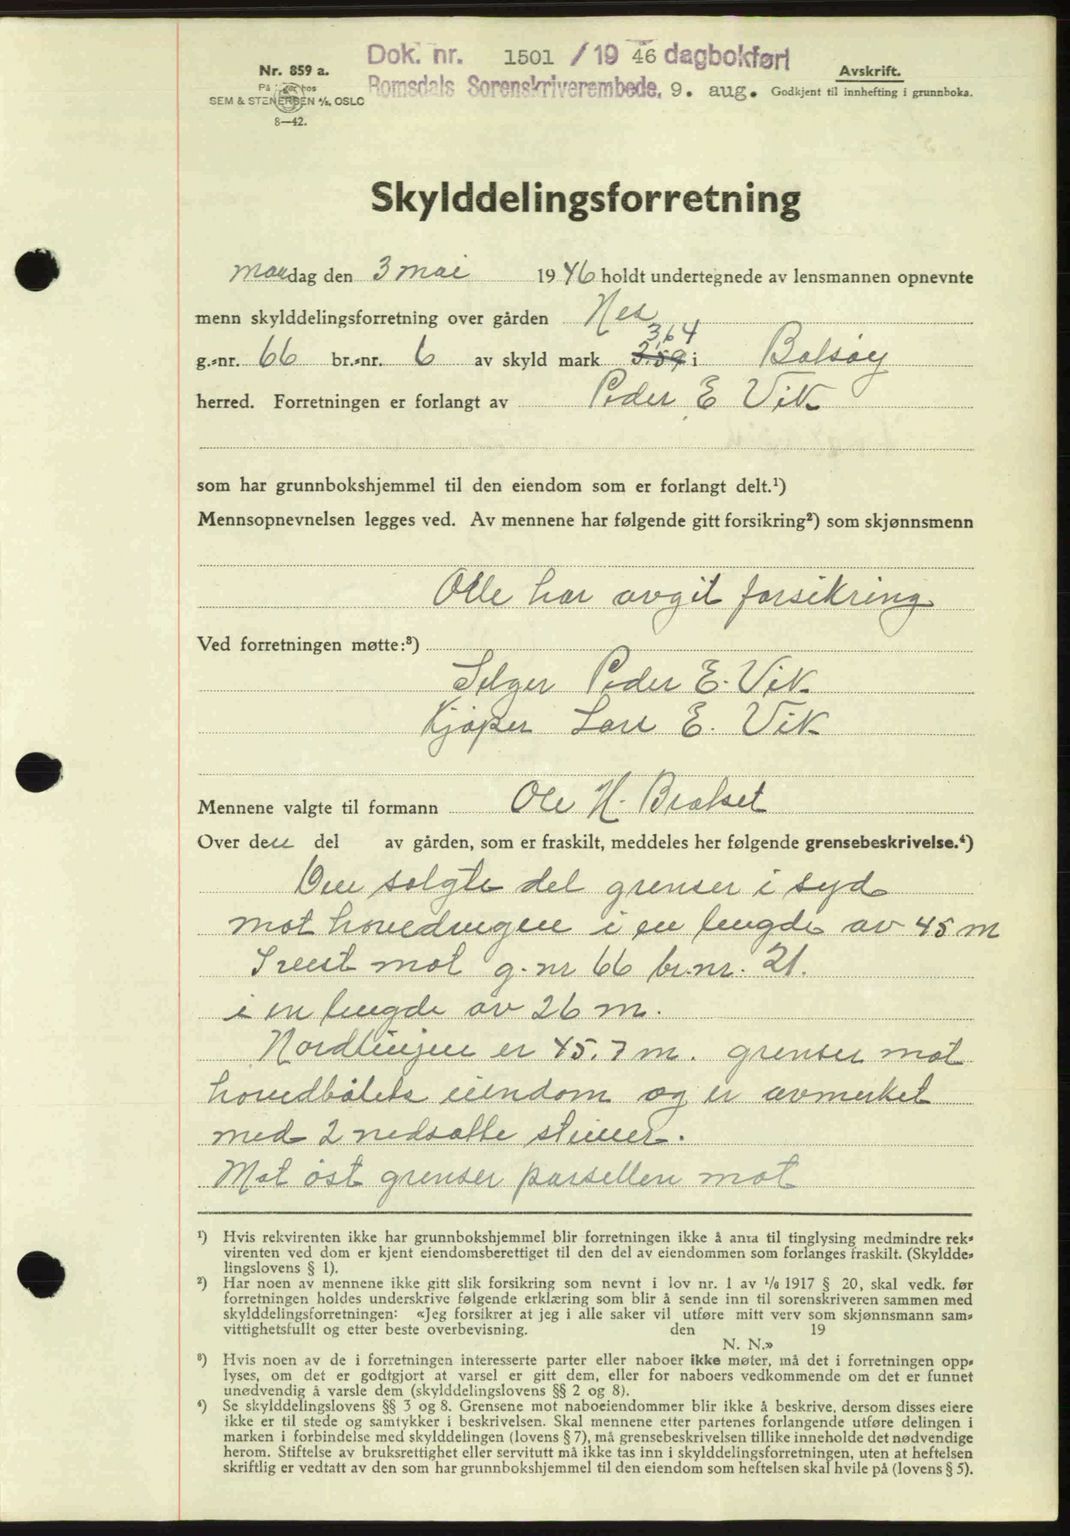 Dok. nr. 1501 / 19 46 dagbokført
Nr. 859 a.
Romsdals Sorenskriverembede, 9. aug.
Avskrift.
Godkjent til innhefting i grunnboka.
SEM & STENERSEN A/S, OSLO
8—42.
Skylddelingsforretning
dag den 3 mai 1946 holdt undertegnede av lensmannen opnevnte
menn skylddelingsforretning over gården Nes
3,64
g.-nr. 66 br.-nr. 6 av skyld mark 3.59 i Bolsøy
herred. Forretningen er forlangt av Peder E Vik
som har grunnbokshjemmel til den eiendom som er forlangt delt.¹)
Mennsopnevnelsen legges ved. Av mennene har følgende gitt forsikring²) som skjønnsmenn
Olle har avgit forsikring
Ved forretningen møtte:³)
Selger Peder E. Vik
Kjøper Lars E. Vik
Mennene valgte til formann Ole H. Brakset
Over den del av gården, som er fraskilt, meddeles her følgende grensebeskrivelse.⁴)
Den solgte del grenser i syd
mot hovedveigen i en lengde av 45 m
I vest mot g.nr 66 br.nr. 21.
i en lengde av 26 m.
Nordlinjen er 45.7 m. grenser mot
hovedbølets eiendom og er avmerket
med 2 nedsatte steiner.
Mot øst grenser parsellen mot
¹) Hvis rekvirenten ikke har grunnbokshjemmel blir forretningen ikke å anta til tinglysing medmindre rek-
virenten ved dom er kjent eiendomsberettiget til den del av eiendommen som forlanges fraskilt. (Skyldde-
lingslovens § 1).
²) Har noen av mennene ikke gitt slik forsikring som nevnt i lov nr. 1 av 1/6 1917 § 20, skal vedk. før
forretningen holdes underskrive følgende erklæring som blir å sende inn til sorenskriveren sammen med
skylddelingsforretningen: «Jeg forsikrer at jeg i alle saker vil utføre mitt verv som skjønnsmann sam-
vittighetsfullt og etter beste overbevisning. den 19
N. N.»
³) Hvis noen av de i forretningen interesserte parter eller naboer ikke møter, må det i forretningen opp-
lyses, om det er godtgjort at varsel er gitt dem, eller for naboers vedkommende om det er funnet
unødvendig å varsle dem (skylddelingslovens §§ 2 og 8).
⁴) Se skylddelingslovens §§ 3 og 8. Grensene mot naboeiendommer blir ikke å beskrive, dersom disses eiere
ikke er til stede og samtykker i beskrivelsen. Skal mennene etter partenes forlangende utføre delingen i
marken i forbindelse med skylddelingen (lovens § 7), må grensebeskrivelsen tillike inneholde det nødvendige
herom. Stiftelse av bruksrettighet eller servitutt må ikke tas inn i skylddelingsforretningen, uten at heftelsen
skriftlig er vedtatt av den som har grunnbokshjemmel til den eiendom som heftelsen skal hvile på (lovens § 5).